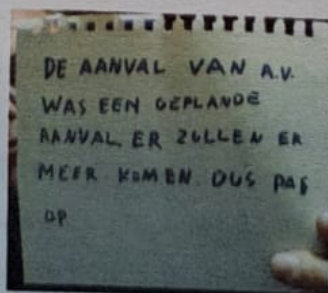 DE AANVAL VAN A.V.
WAS EEN GEPLANDE
AANVAL, ER ZULLEN ER
MEER KOMEN. DUS PAS
OP